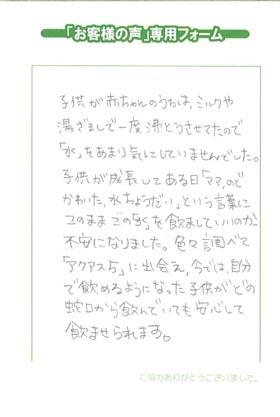 「お客様の声」専用フォーム
子供が赤ちゃんのうちは、ミルクや
湯ざましで一度沸とうさせてたので
「水」をあまり気にしていませんでした。
子供が成長してある日「ママ、のど
かわいた、水ちょうだい」という言葉に
このままこの「水」を飲ましていいのか
不安になりました。色々調べて
「アクアス5」に出会え、今では、自分
で飲めるようになった子供がどの
蛇口から飲んでいても安心して
飲ませられます。
ご協力ありがとうございました。